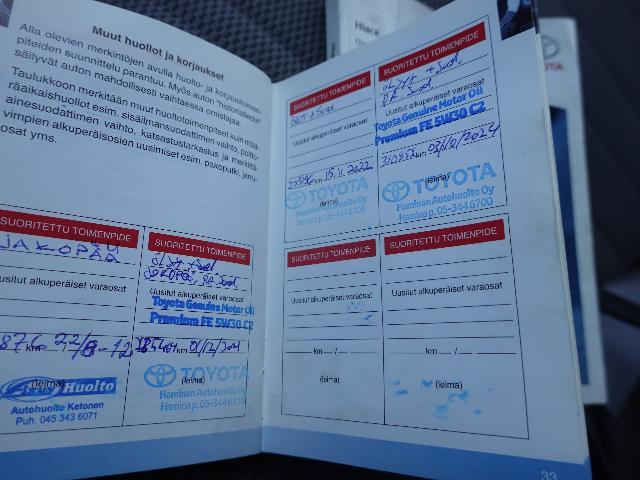 Muut huollot ja korjaukset
Alla olevien merkintöjen avulla huolto- ja korjaustoimen-
piteiden suunnittelu parantuu. Myös auton "historiatiedot"
säilyvät auton mahdollisesti vaihtaessa omistajaa.
Taulukkoon merkitään muut huoltotoimenpiteet kuin mää-
räaikaishuollot esim. sisäilmansuodattimen vaihto, poltto-
ainesuodattimen vaihto, katsastustarkastus ja merkittä-
vimpien alkuperäisosien uusimiset esim. pakoputki, jarru-
osat yms.
SUORITETTU TOIMENPIDE
JAKOPÄÄ
Uusitut alkuperäiset varaosat
km 22/8-12
(leima)
Huolto
Autohuolto Ketonen
Puh. 045 343 6071
SUORITETTU TOIMENPIDE
Uusitut alkuperäiset varaosat
Toyota Genuine Motor Oil
Premium FE 5W30 C2
km
TOYOTA
(leima)
Haminan Autohuolto Oy
Hamina p. 05-344 6700
SUORITETTU TOIMENPIDE
Uusitut alkuperäiset varaosat
km 15.11.2022
TOYOTA
(leima)
Haminan Autohuolto Oy
Hamina p. 05-344 6700
SUORITETTU TOIMENPIDE
Uusitut alkuperäiset varaosat
Toyota Genuine Motor Oil
Premium FE 5W30 C2
km
TOYOTA
(leima)
Haminan Autohuolto Oy
Hamina p. 05-344 6700
SUORITETTU TOIMENPIDE
Uusitut alkuperäiset varaosat
km / /
(leima)
SUORITETTU TOIMENPIDE
Uusitut alkuperäiset varaosat
km / /
(leima)
33
Hiace